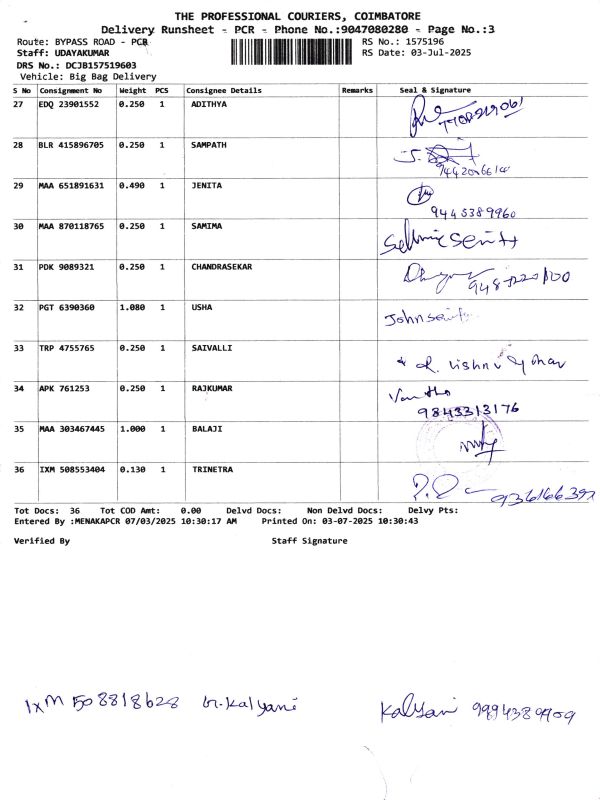 THE PROFESSIONAL COURIERS, COIMBATORE
Delivery Runsheet - PCR - Phone No.:9047080280 - Page No.:3
Route: BYPASS ROAD - PCR RS No.: 1575196
Staff: UDAYAKUMAR RS Date: 03-Jul-2025
DRS No.: DCJB157519603
Vehicle: Big Bag Delivery
S No Consignment No Weight PCS Consignee Details Remarks Seal & Signature
27 EDQ 23901552 0.250 1 ADITHYA
28 BLR 415896705 0.250 1 SAMPATH
29 MAA 651891631 0.490 1 JENITA
9445389960
30 MAA 870118765 0.250 1 SAMIMA
31 PDK 9089321 0.250 1 CHANDRASEKAR
32 PGT 6390360 1.080 1 USHA
33 TRP 4755765 0.250 1 SAIVALLI
34 APK 761253 0.250 1 RAJKUMAR
9843313176
35 MAA 303467445 1.000 1 BALAJI
36 IXM 508553404 0.130 1 TRINETRA
Tot Docs: 36 Tot COD Amt: 0.00 Delvd Docs: Non Delvd Docs: Delvy Pts:
Entered By :MENAKAPCR 07/03/2025 10:30:17 AM Printed On: 03-07-2025 10:30:43
Verified By Staff Signature
IXM 508818628 G.Kalyani Kalyani 9994389909